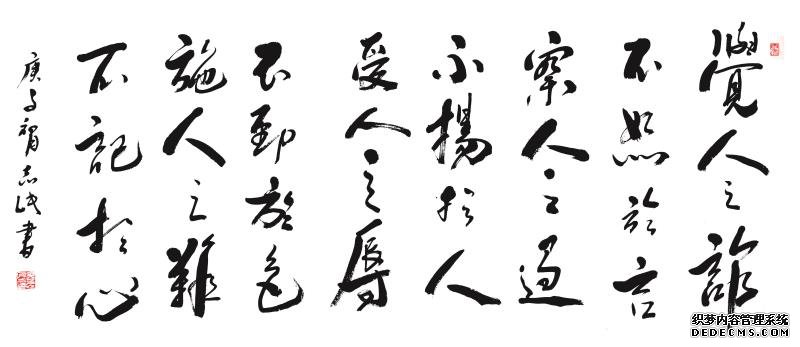 覺人之詐
不怒於言
察人之過
不揚於人
受人之辱
不動於色
施人之難
不記於心
庚 志 書
织梦内容管理系统
DEDECMS.COM